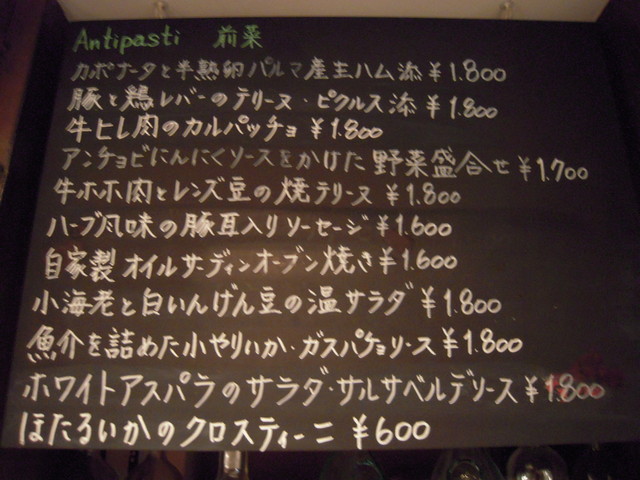 Antipasti 前菜
カポナータと半熟卵パルマ産生ハム添 ¥1.800
豚と鶏レバーのテリーヌ・ピクルス添 ¥1.800
牛ヒレ肉のカルパッチョ ¥1.800
アンチョビにんにくソースをかけた野菜盛合せ ¥1.700
牛ホホ肉とレンズ豆の焼テリーヌ ¥1.800
ハーブ風味の豚耳入りソーセージ ¥1.600
自家製オイルサーディンオーブン焼き ¥1.600
小海老と白いんげん豆の温サラダ ¥1.800
魚介を詰めた小やりいか・ガスパチョソース ¥1.800
ホワイトアスパラのサラダ・サルサベルデソース ¥1.800
ほたるいかのクロスティーニ ¥600